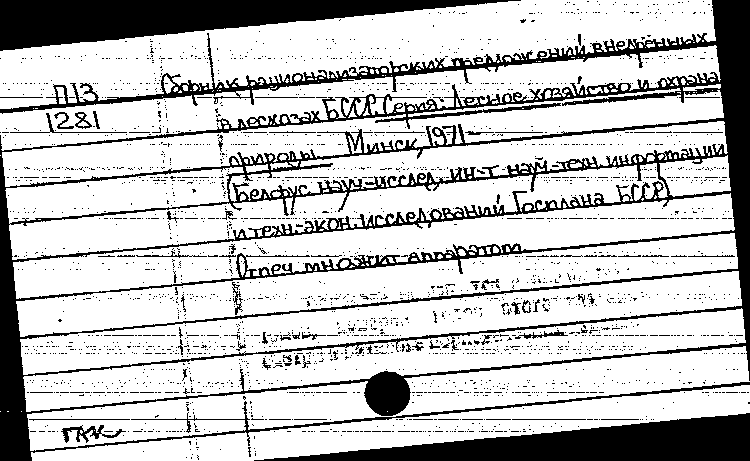 П13 Сборник рационализаторских предложений, внедрённых
1281 в лесхозах БССР. Серия: Лесное хозяйство и охрана
природы. Минск, 1971-
(Белорус. науч.-исслед. ин-т науч.-техн. информации
и техн.-экон. исследований Госплана БССР)
Отпеч. множит. аппаратом.
этого